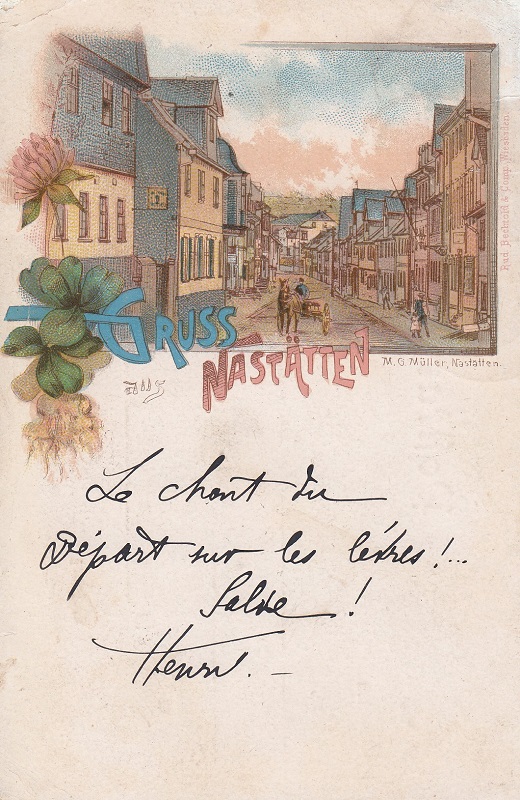 GRUSS
aus
NASTÄTTEN
M. O. Müller, Nastätten.
Rud Bechtold & Comp. Wiesbaden
Le chant du
Départ sur les lèvres !...
Salve !
Henri. -